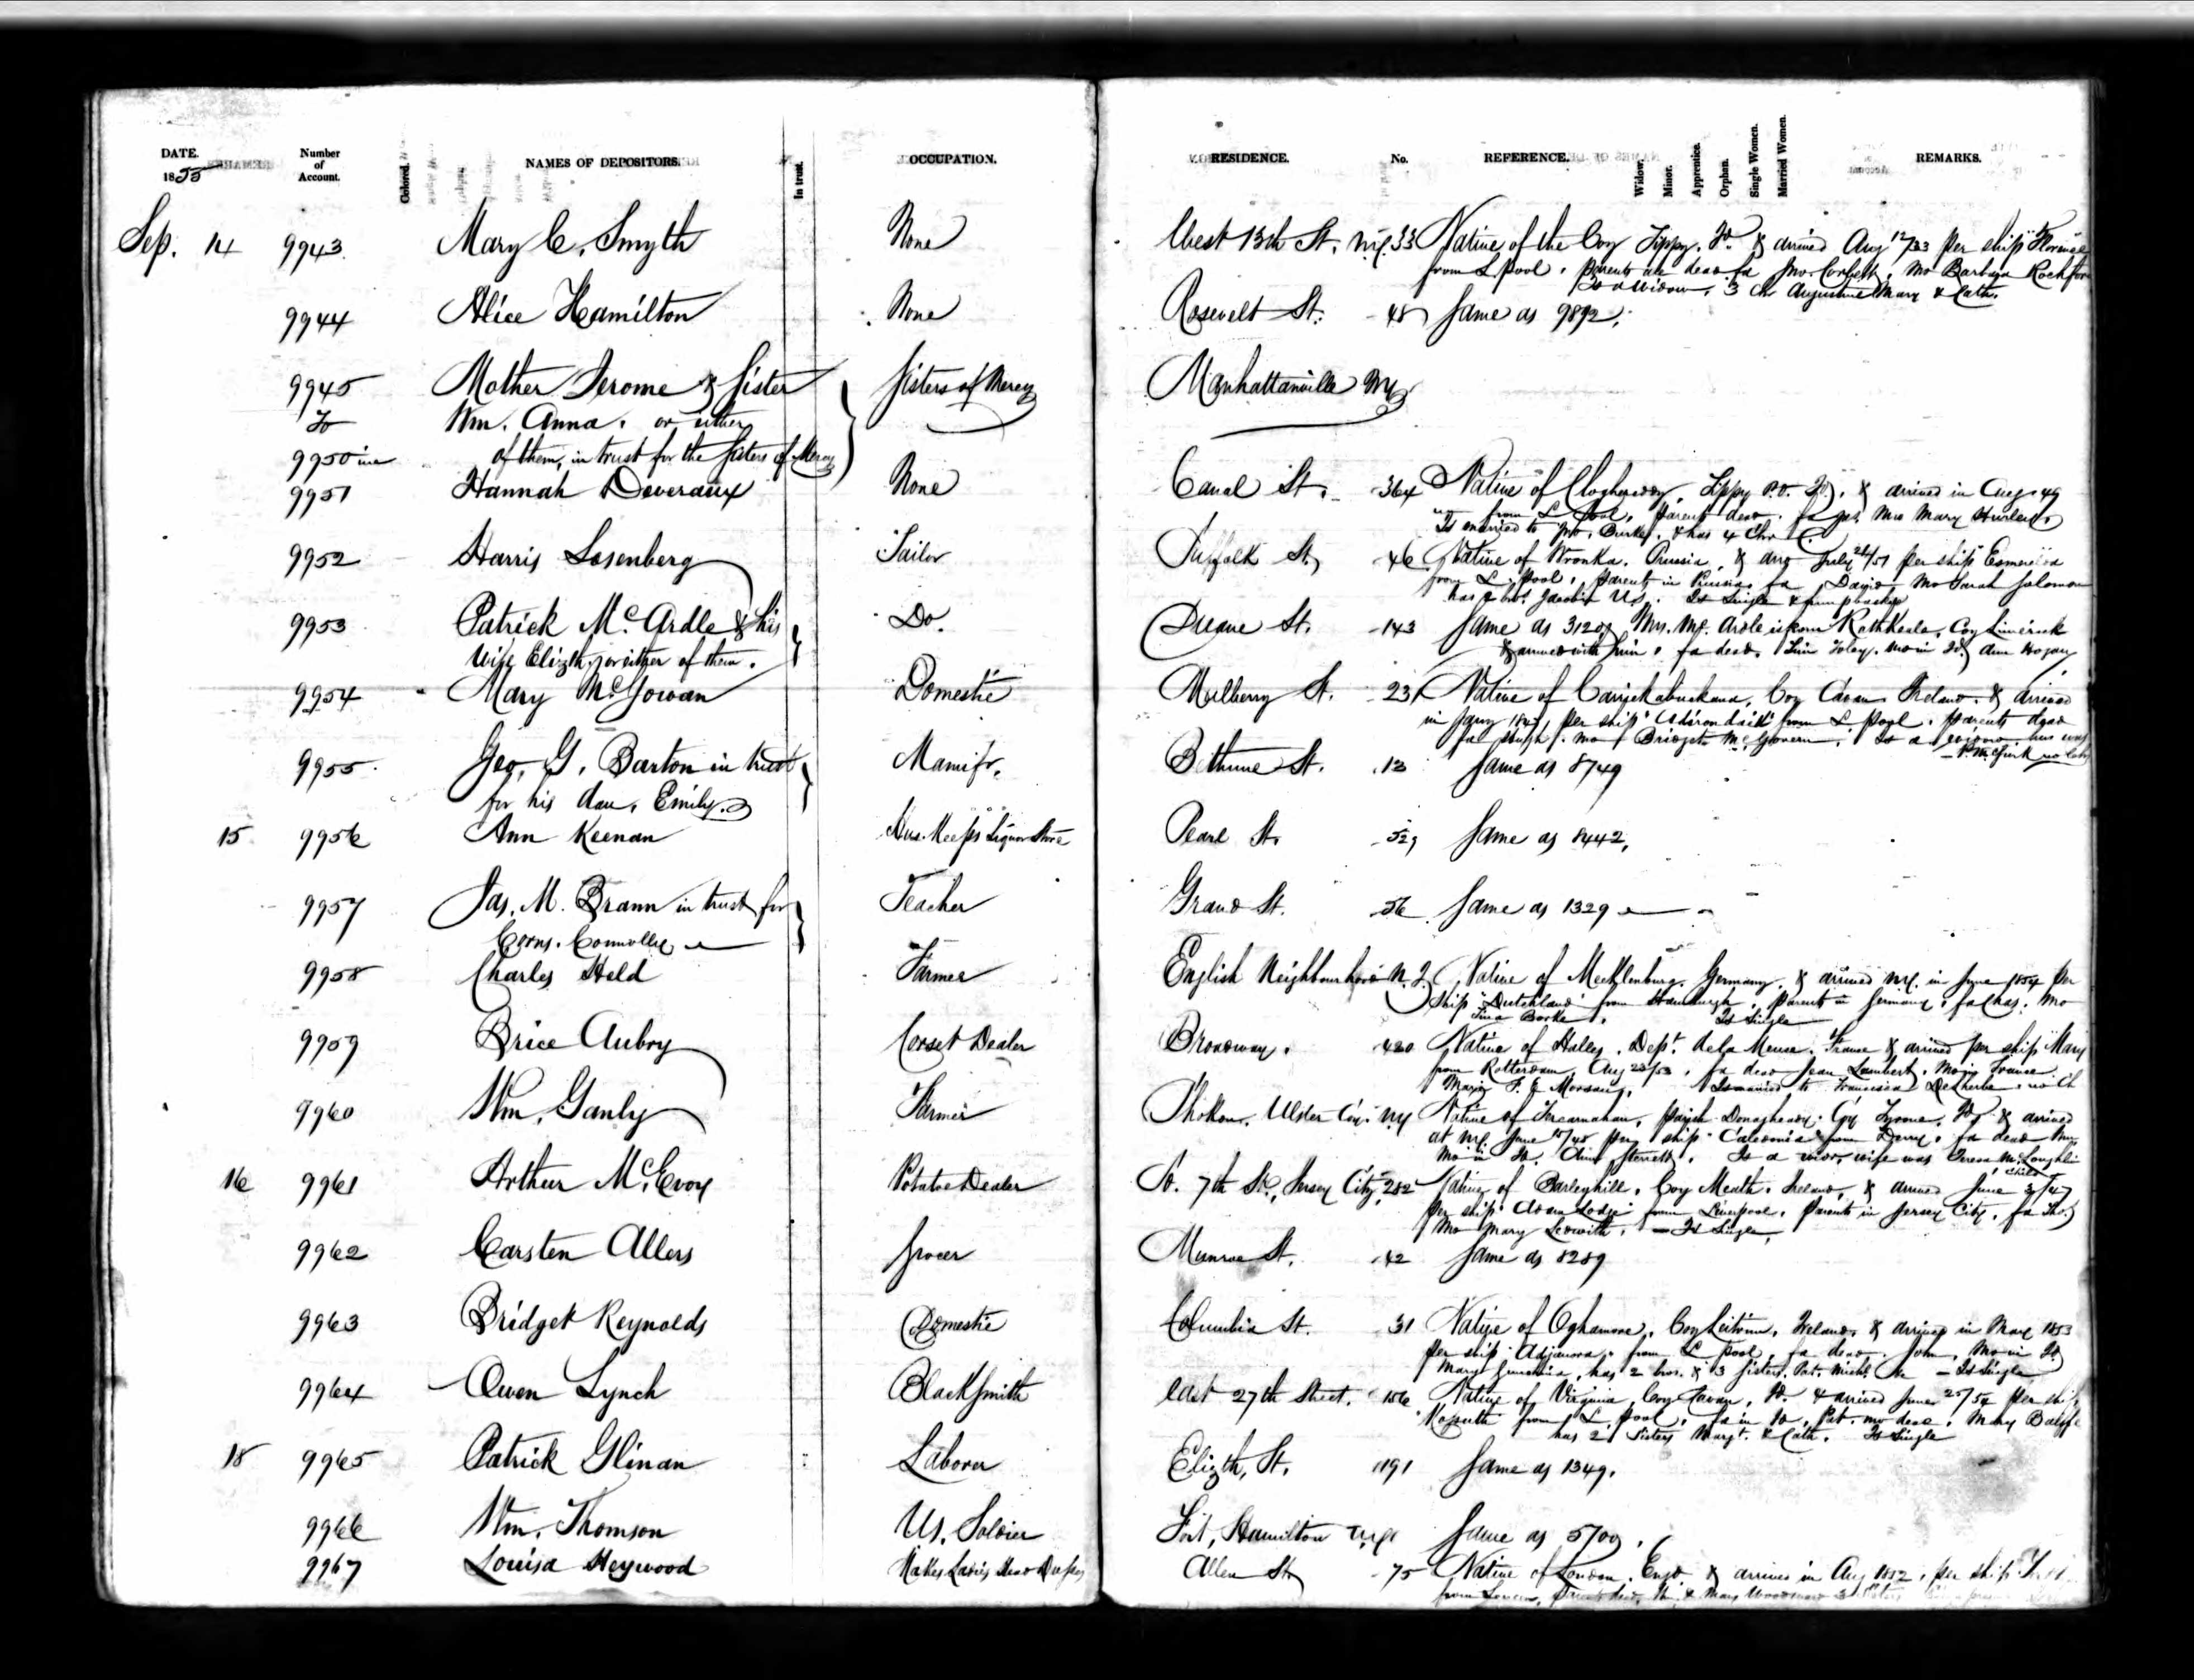 DATE. Number of Account. Colored. NAMES OF DEPOSITORS. In trust. OCCUPATION. RESIDENCE. No. REFERENCE. Widow. Minor. Apprentice. Orphan. Single Women. Married Women. REMARKS.
1855
Sep. 14 9943 Mary C. Smyth None West 13th St. N.Y. 33 Native of the Coy Tippy. Id. & arrived Aug 12/33 per ship
from L. pool. parents are dead fa Jno. Corbett. Mo Barbara
Is a widow. 3 Chr Augustine Mary & Cath.
9944 Alice Hamilton None Rosevelt St. 48 Same as 9892.
9945 Mother Jerome & Sister Sisters of Mercy Manhattanville NY
To Wm. Anna. or either
9950 inc of them, in trust for the Sisters of Mercy
9951 Hannah Deveraux None Canal St. 364 Native of Tippy & arrived in Aug 49
from L. pool, parents dead. fa Mo Mary Hurley.
Is married to Burke. & has 4 Chr
9952 Harris Losenberg Tailor Suffolk St. 46 Native of Wronka. Prussia, & arrd July 24/51 per ship Esmerelda
from L. pool, parents in Prussia fa David Mo Sarah Solomon
has 2 bros. Jacob in U.S. Is Single
9953 Patrick McArdle & his Do. Duane St. 143 Same as 3120, Mrs. Mc. Ardle is from Rathkeale, Coy Limerick
Wife Elizth, or either of them. & arrived with him. fa dead. Tim Foley. Mo in Id. Ann Hogan
9954 Mary McGowan Domestic Mulberry St. 231 Native of Coy Cavan Ireland. & arrived
in Jany per ship "Adirondack" from L. pool. parents dead
fa Hugh. mo Bridget McGovern. Is a widow hus was
P. McGurk no Chr
9955 Geo. G. Barton in trust Manufr. Bethune St. 13 Same as 8749
for his dau. Emily.
15 9956 Ann Keenan Hus. Keeps Liquor Store Pearl St. 529 Same as 8442.
9957 Jas. M. Brann in trust for Teacher Grand St. 56 Same as 1329
Corns. Connolly
9958 Charles Held Farmer English Neighbourhood N.J. Native of Mecklenburg. Germany. & arrived N.Y. in June 1854 per
Ship "Dutchland" from Hamburgh. parents in Germany. fa Chas. Mo
Borke. Is Single
9959 Brice Aubry Corset Dealer Broadway. 420 Native of Halles. Dept. de la Meuse. France & arrived per ship Mary
from Rotterdam Aug 23/53. fa dead Jean Lambert. Mo in France
Is married to Francisca no Ch
9960 Wm. Ganly Farmer Shokan. Ulster Coy. NY Native of parish Donagheady. Coy Tyrone. Id & arrived
at N.Y. June 15/48 per ship "Caledonia" from Derry. fa dead
Mo in Id. Ann Sterrett. Is a widr. wife was Teresa McLoughlin
16 9961 Arthur McEvoy Potatoe Dealer So. 7th St. Jersey City. 282 Native of Barleyhill. Coy Meath. Ireland, & arrived June 3/47
per ship Adam Lodge from Liverpool. Parents in Jersey City. fa Thos.
Mo Mary Ledwith. Is Single
9962 Carsten Allers Grocer Munroe St. 42 Same as 8289
9963 Bridget Reynolds Domestic Columbia St. 31 Native of Coy Leitrim. Ireland. & arrived in May 1853
per ship from L. pool, fa dead. John. Mo in Id
Mary has 2 bros. & 3 Sisters. Pat. Michl. Is Single
9964 Owen Lynch Blacksmith East 27th Street. 156 Native of Virginia Coy Cavan, Id. & arrived June 25/54 per ship
"Kossuth" from L. pool. fa in Id, Pat. mo dead. Mary
has 2 Sisters Margt. & Cath. Is Single
18 9965 Patrick Glinan Laborer Elizth. St. 191 Same as 1349.
9966 Wm. Thomson U.S. Soldier Fort Hamilton Same as 5709.
9967 Louisa Heywood Makes Ladies Head Dresses Allen St. 75 Native of London. Engd & arrived in Aug 1852. per ship
from London. parents dead. & Mary